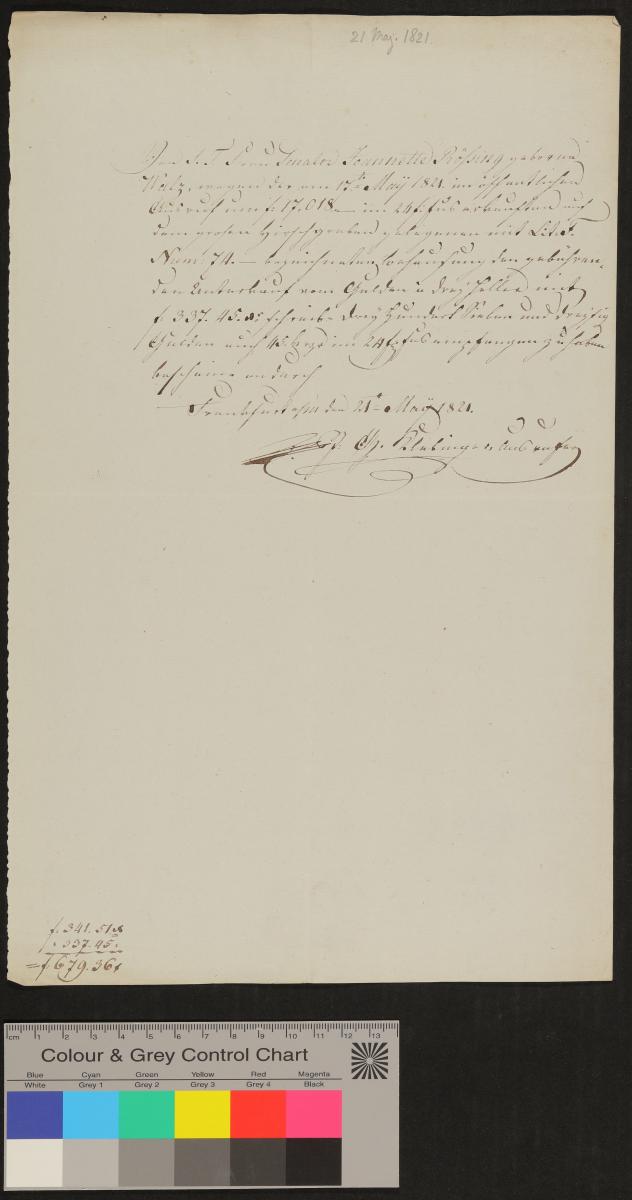 21 May. 1821.
Von S. T. Frau Senator Jeannette Rößing geborne
Walz, wegen der am 17ten May 1821. im öffentlichen
Ausruf um f. 17,018.— im 24 f. fus erkauften auf
dem grosen Hirschgraben gelegenen mit Lit. F.
Num: 74.— bezeichneten Behausung den gebühren-
den Unterkauf vom Gulden à drey Heller mit
f 337. 45. xr schreibe drey Hundert Sieben und dreißig
Gulden auch 45. kreuzer im 24 f. fus empfangen zu haben
bescheine andurch
Frankfurt a/M den 21ten May 1821.
Ausrufer
f. 341. 51 xr
" 337. 45 "
= f. 679. 36 xr
cm 1 2 3 4 5 6 7 8 9 10 11 12 13
Colour & Grey Control Chart
Blue Cyan Green Yellow Red Magenta
White Grey 1 Grey 2 Grey 3 Grey 4 Black